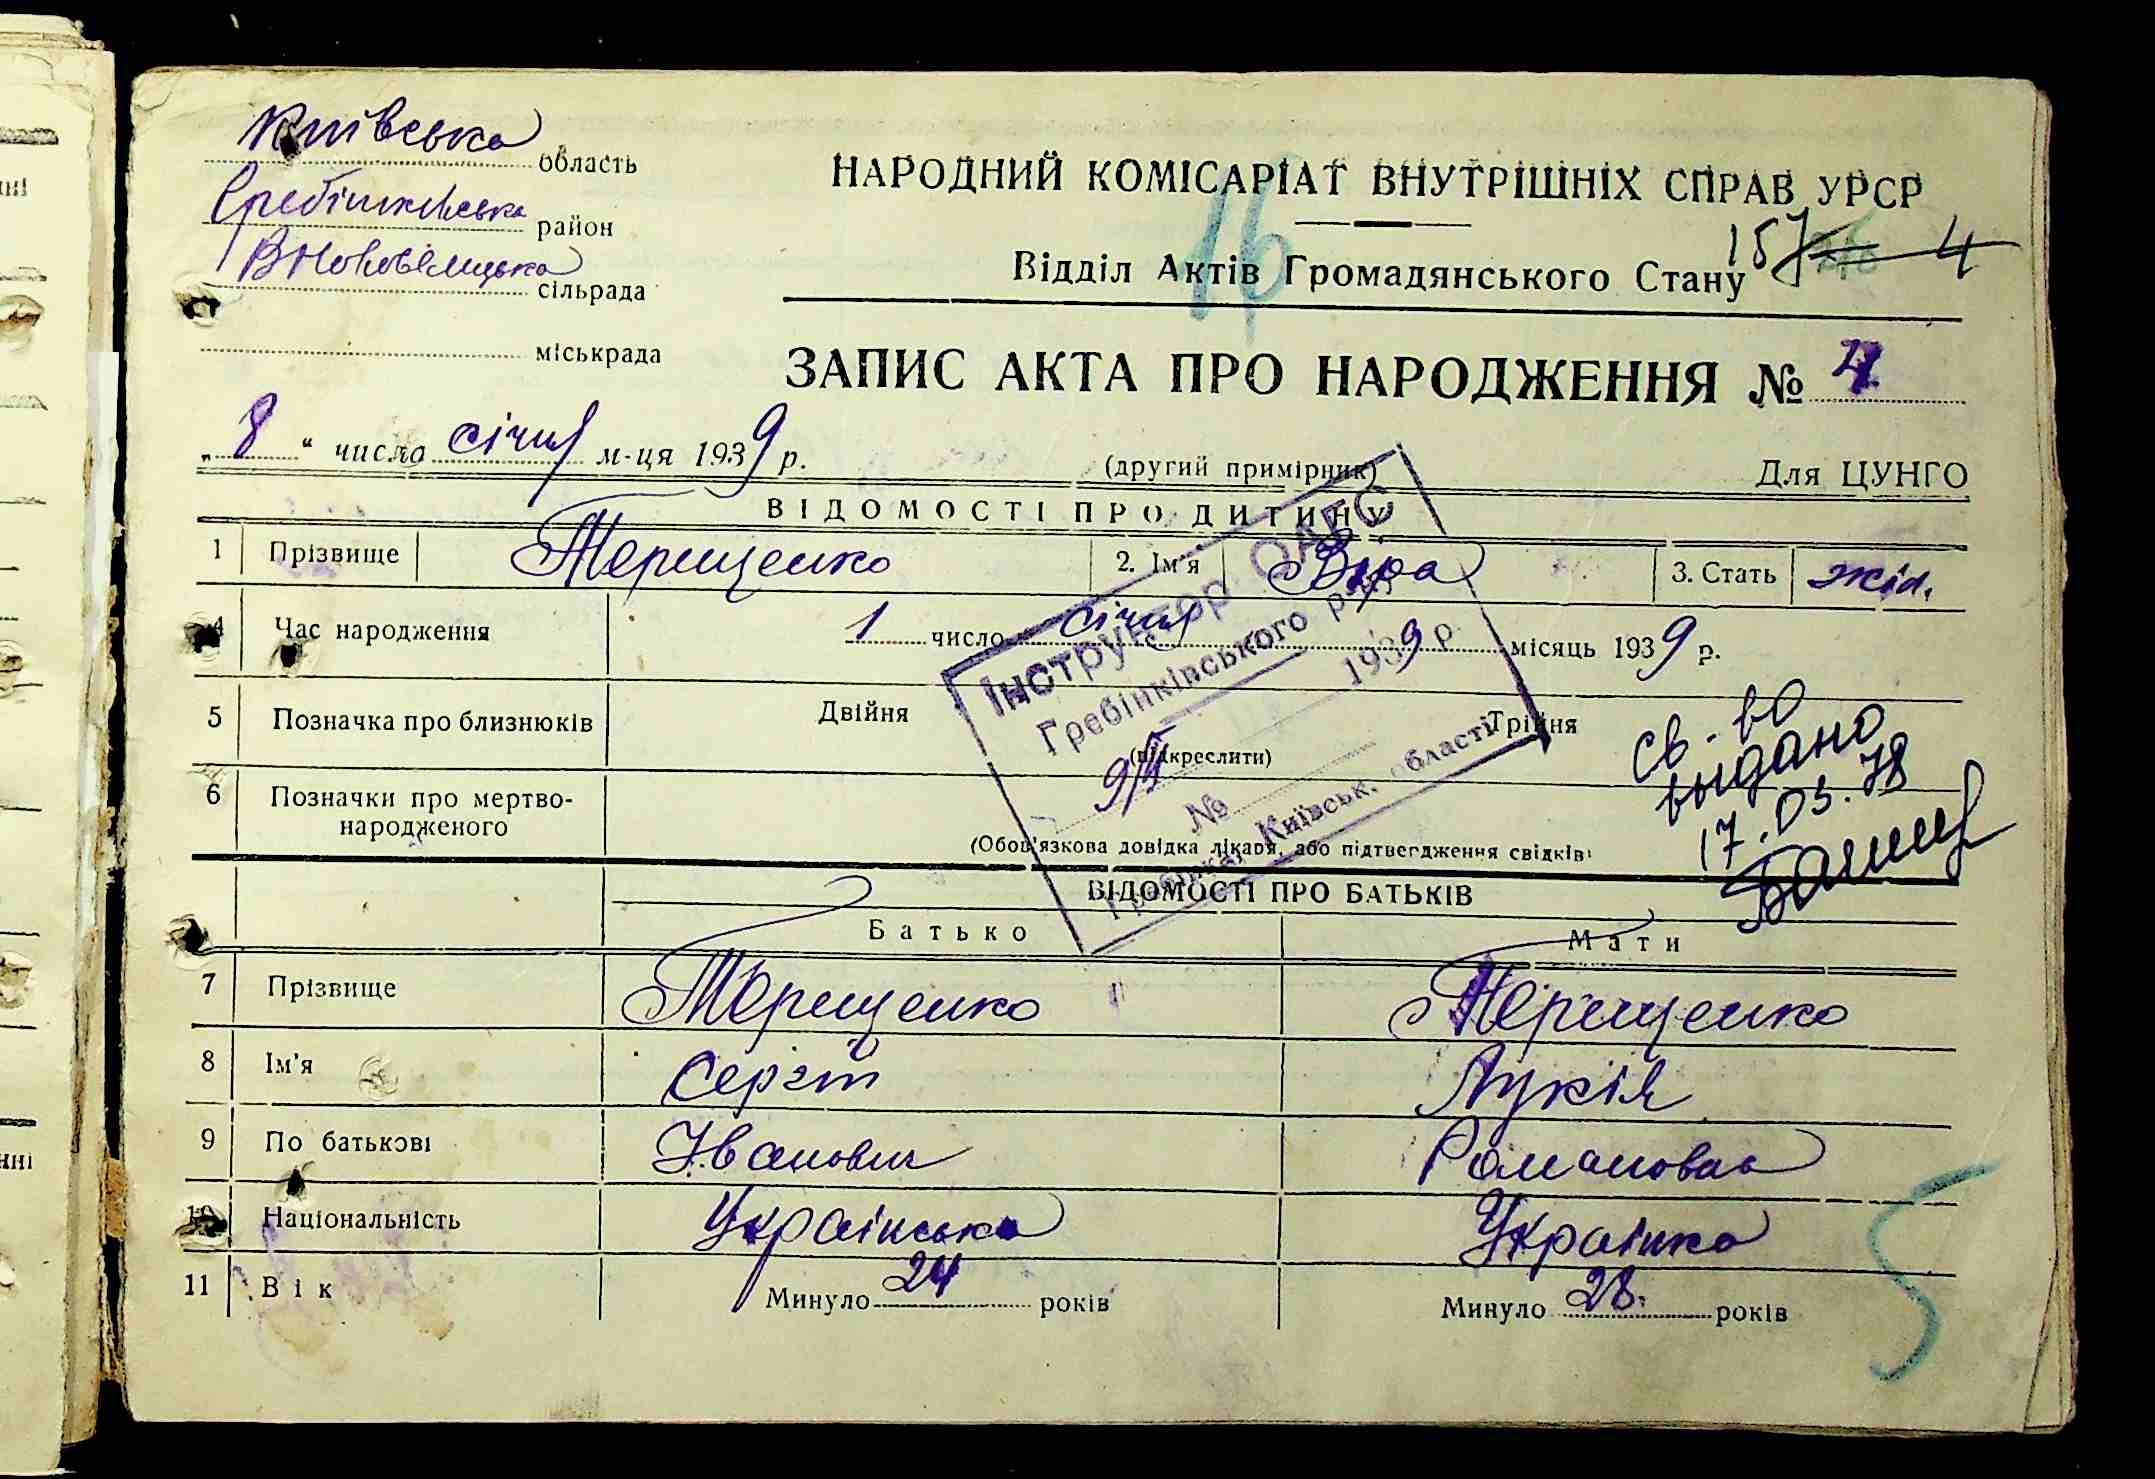 Київська область
Гребінківська район
В Нововелицька сільрада
міськрада
НАРОДНИЙ КОМІСАРІАТ ВНУТРІШНІХ СПРАВ УРСР
16
Відділ Актів Громадянського Стану
157 4
ЗАПИС АКТА ПРО НАРОДЖЕННЯ № 4
„8“ число січня м-ця 1939 р.
(другий примірник)
Для ЦУНГО
ВІДОМОСТІ ПРО ДИТИНУ
1 Прізвище Терещенко 2. Ім'я Віра 3. Стать жін.
4 Час народження 1 число січня місяць 1939 р.
5 Позначка про близнюків Двійня Трійня
(підкреслити)
6 Позначки про мертвонародженого
(Обов'язкова довідка лікаря, або підтвердження свідків)
Інструктор ОАГС
Гребінківського р.
1939 р.
9/II
№
Гребінка, Київськ. області
св-во
выдано
17.03.78
ВІДОМОСТІ ПРО БАТЬКІВ
Батько Мати
7 Прізвище Терещенко Терещенко
8 Ім'я Сергій Лукія
9 По батькові Іванович Романовна
10 Національність Українська Українка
11 Вік Минуло 24 років Минуло 28. років
5